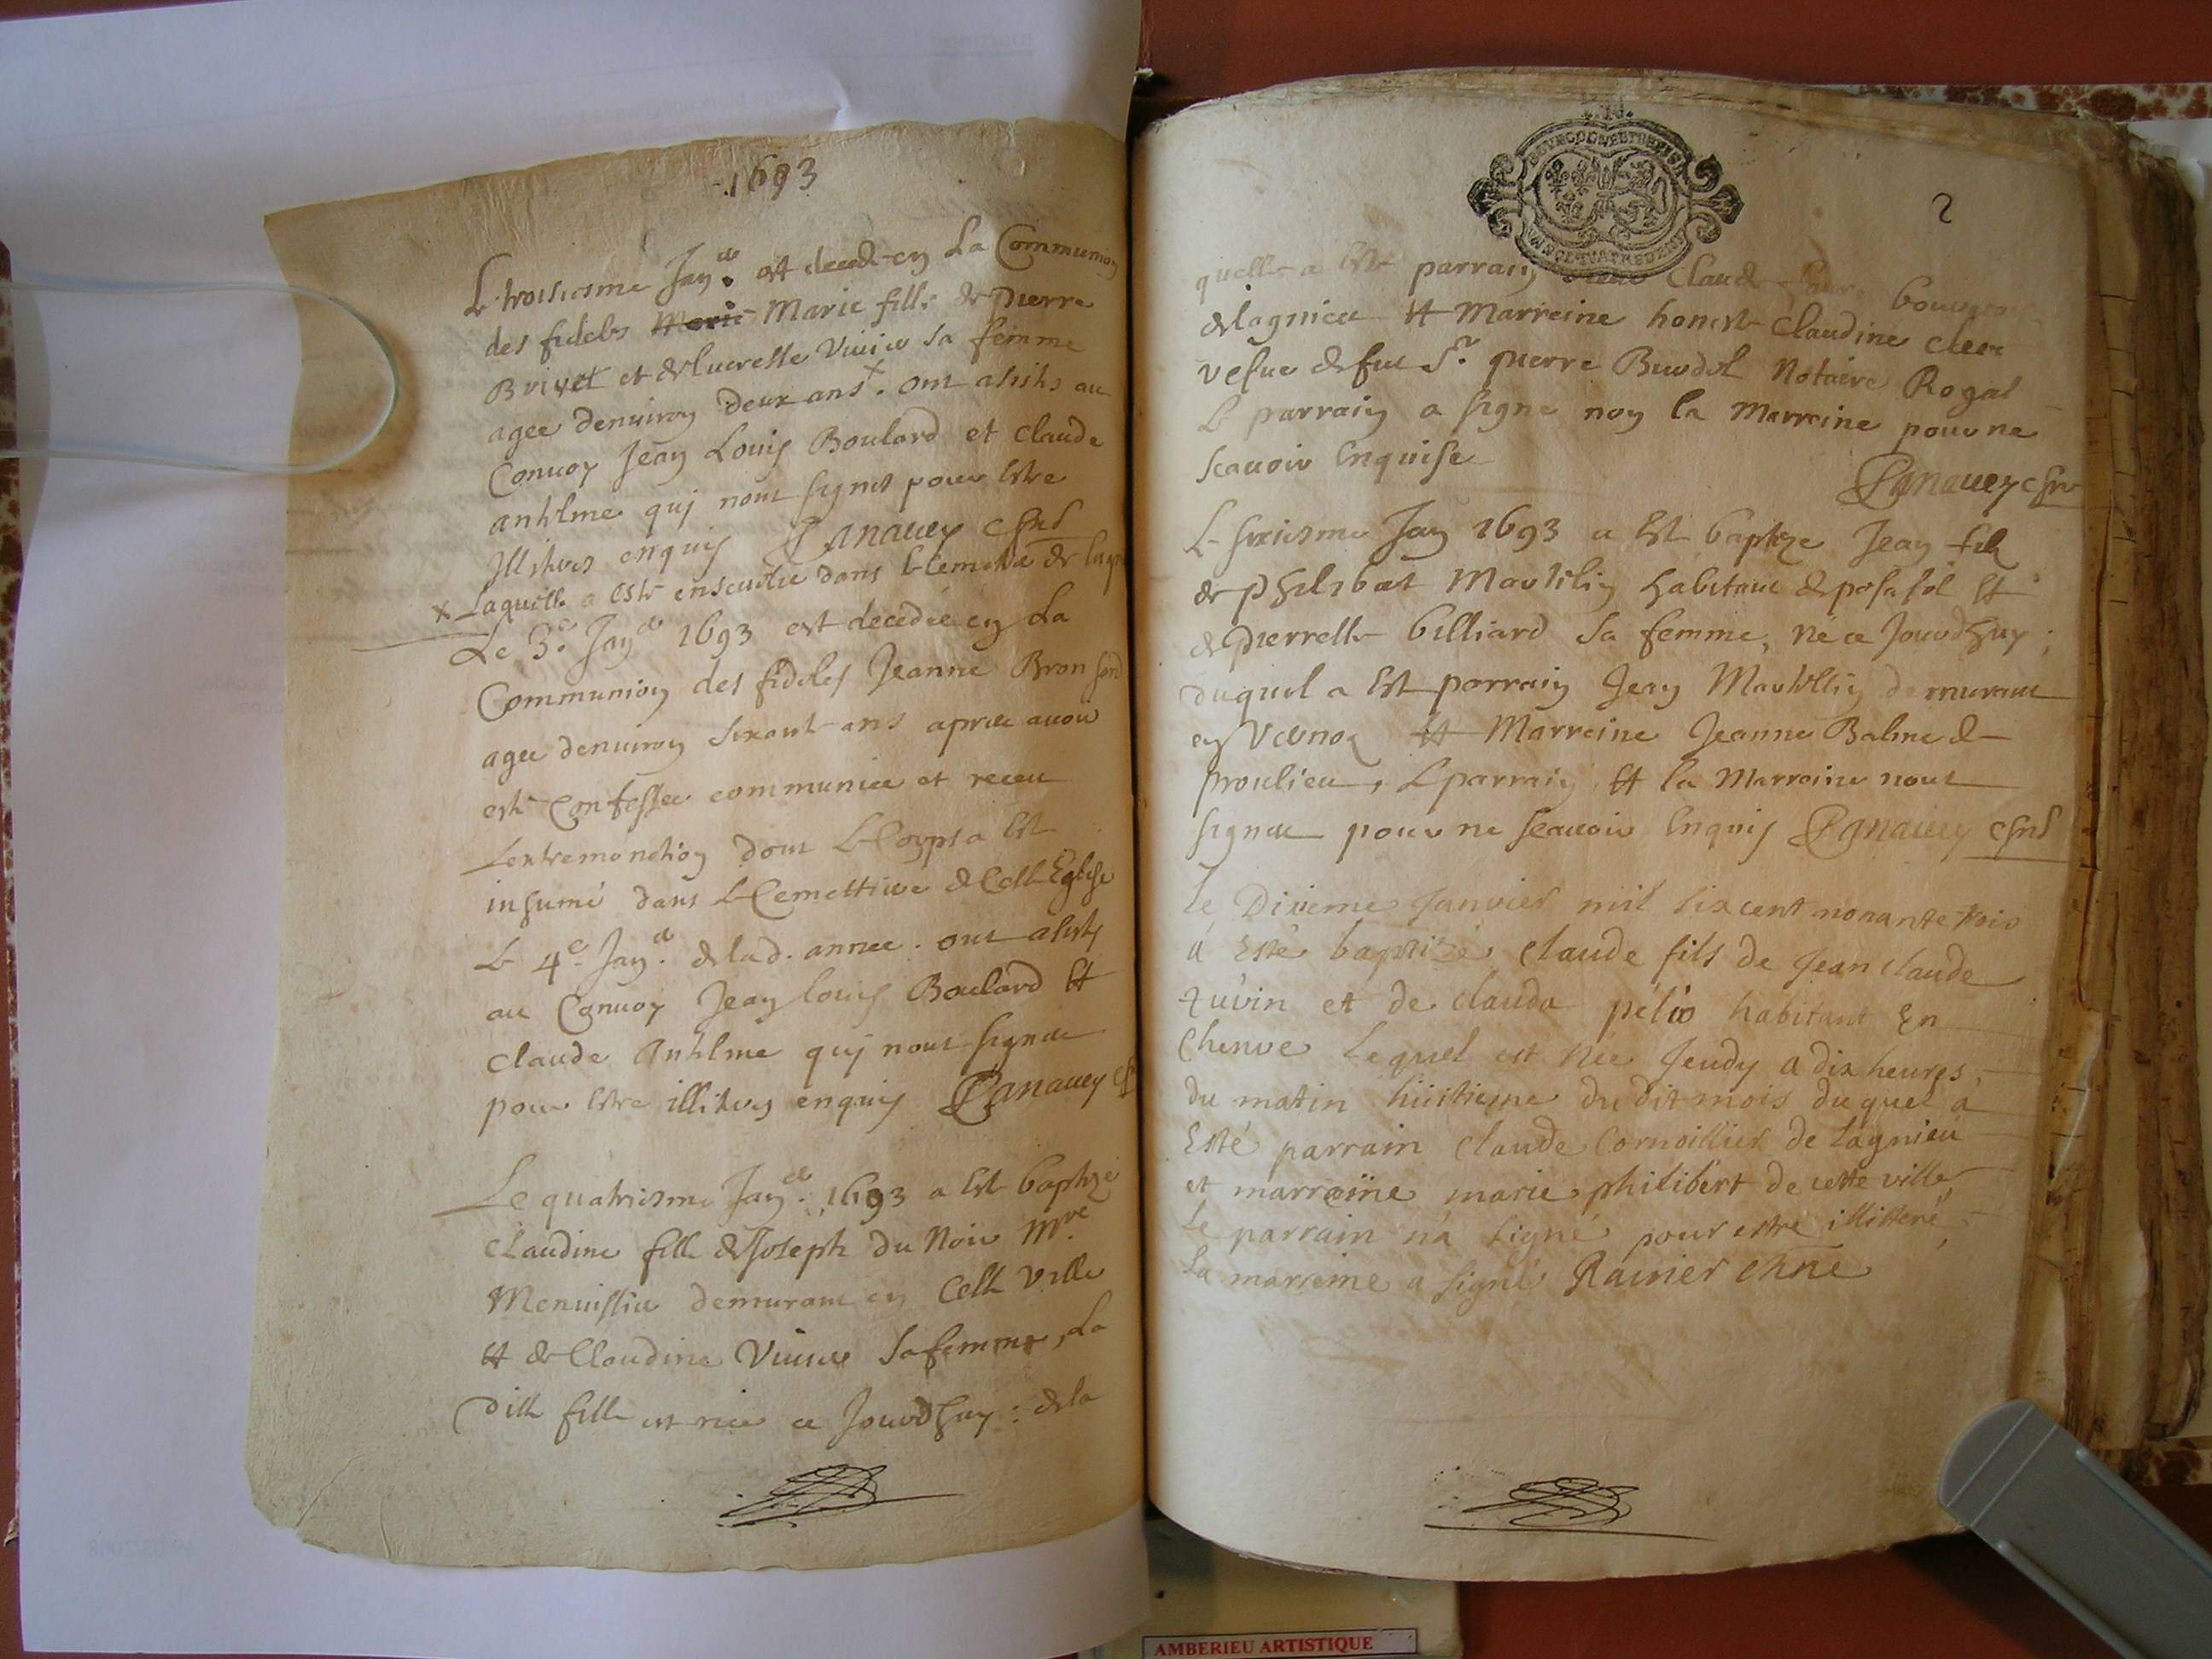 1693
Le troisiesme Jan.er est decede en La Communion
des fideles Marie Marie fille de pierre
Brivet et de lucresse Vivier sa femme
agee denuiron deux ans x. ont asistes au
Conuoy Jean Louis Boulard et claude
anthlme quj nont signes pour Estre
Illiteres enquis Panauey
x Laquelle a esté enseuelie dans le Cemetiere de
Le 3.e Jan.er 1693 est decedée en La
Communion des fideles Jeanne Bron
agee denuiron soixante ans apres auoir
este Confessee communiee et receu
Lextremonction dont Le Corps a Esté
inhumé dans Le Cemettiere de Cette Eglise
Le 4.e Jan.er de lad. annee. ont asistes
au Conuoy Jean louis Boulard Et
claude Anthlme quj nont signes
pour Estre illiteres enquis Panauey
Le quatriesme Jan.er 1693 a Esté baptizé
Claudine fille de Joseph du Noir M.re
Menuissier demurant en Cette Ville
Et de Claudine Viuier Sa femme, La
ditte fille est nee ce Jourdhuy : de la
2
quelle a Esté parrain Claude
de lagnieu Et Marreine honeste Claudine clerc
vefue de feu S.r pierre Buudet Notaire Royal
Le parrain a signe non la Marreine pour ne
scauoir Enquise
Panauey
Le sixiesme Jan 1693 a Esté baptize Jean fils
de philibert Mautelin habitant de posafol Et
de pierrette billiard Sa femme, né ce Jourdhuy ;
duquel a Esté parrain Jean demurant
en Et Marreine Jeanne Balme de
proulieu, Le parrain Et la Marreine nont
signes pour ne scauoir Enquis Panauey
Le Dixieme Janvier mil six cent nonante trois
a Esté baptizé Claude fils de Jean claude
et de claude habitant En
Chenve Lequel est née Jeudy a dix heures,
du matin huictieme du dit mois duquel a
Esté parrain Claude Cornoillier de Lagnieu
et marraine marie philibert de cette ville,
Le parrain n'a signé pour estre illitteré,
La marreine a signé Ravier
AMBERIEU ARTISTIQUE